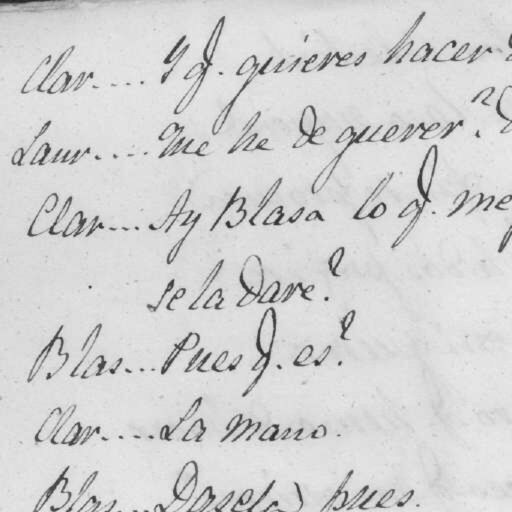 Clar.... Y q.e quieres hacer
Laur.... Que he de querer?
Clar.... Ay Blasa lo q.e me
se la dare?
Blas... Pues q.e es?
Clar.... La mano.
Blas... Dasela pues.